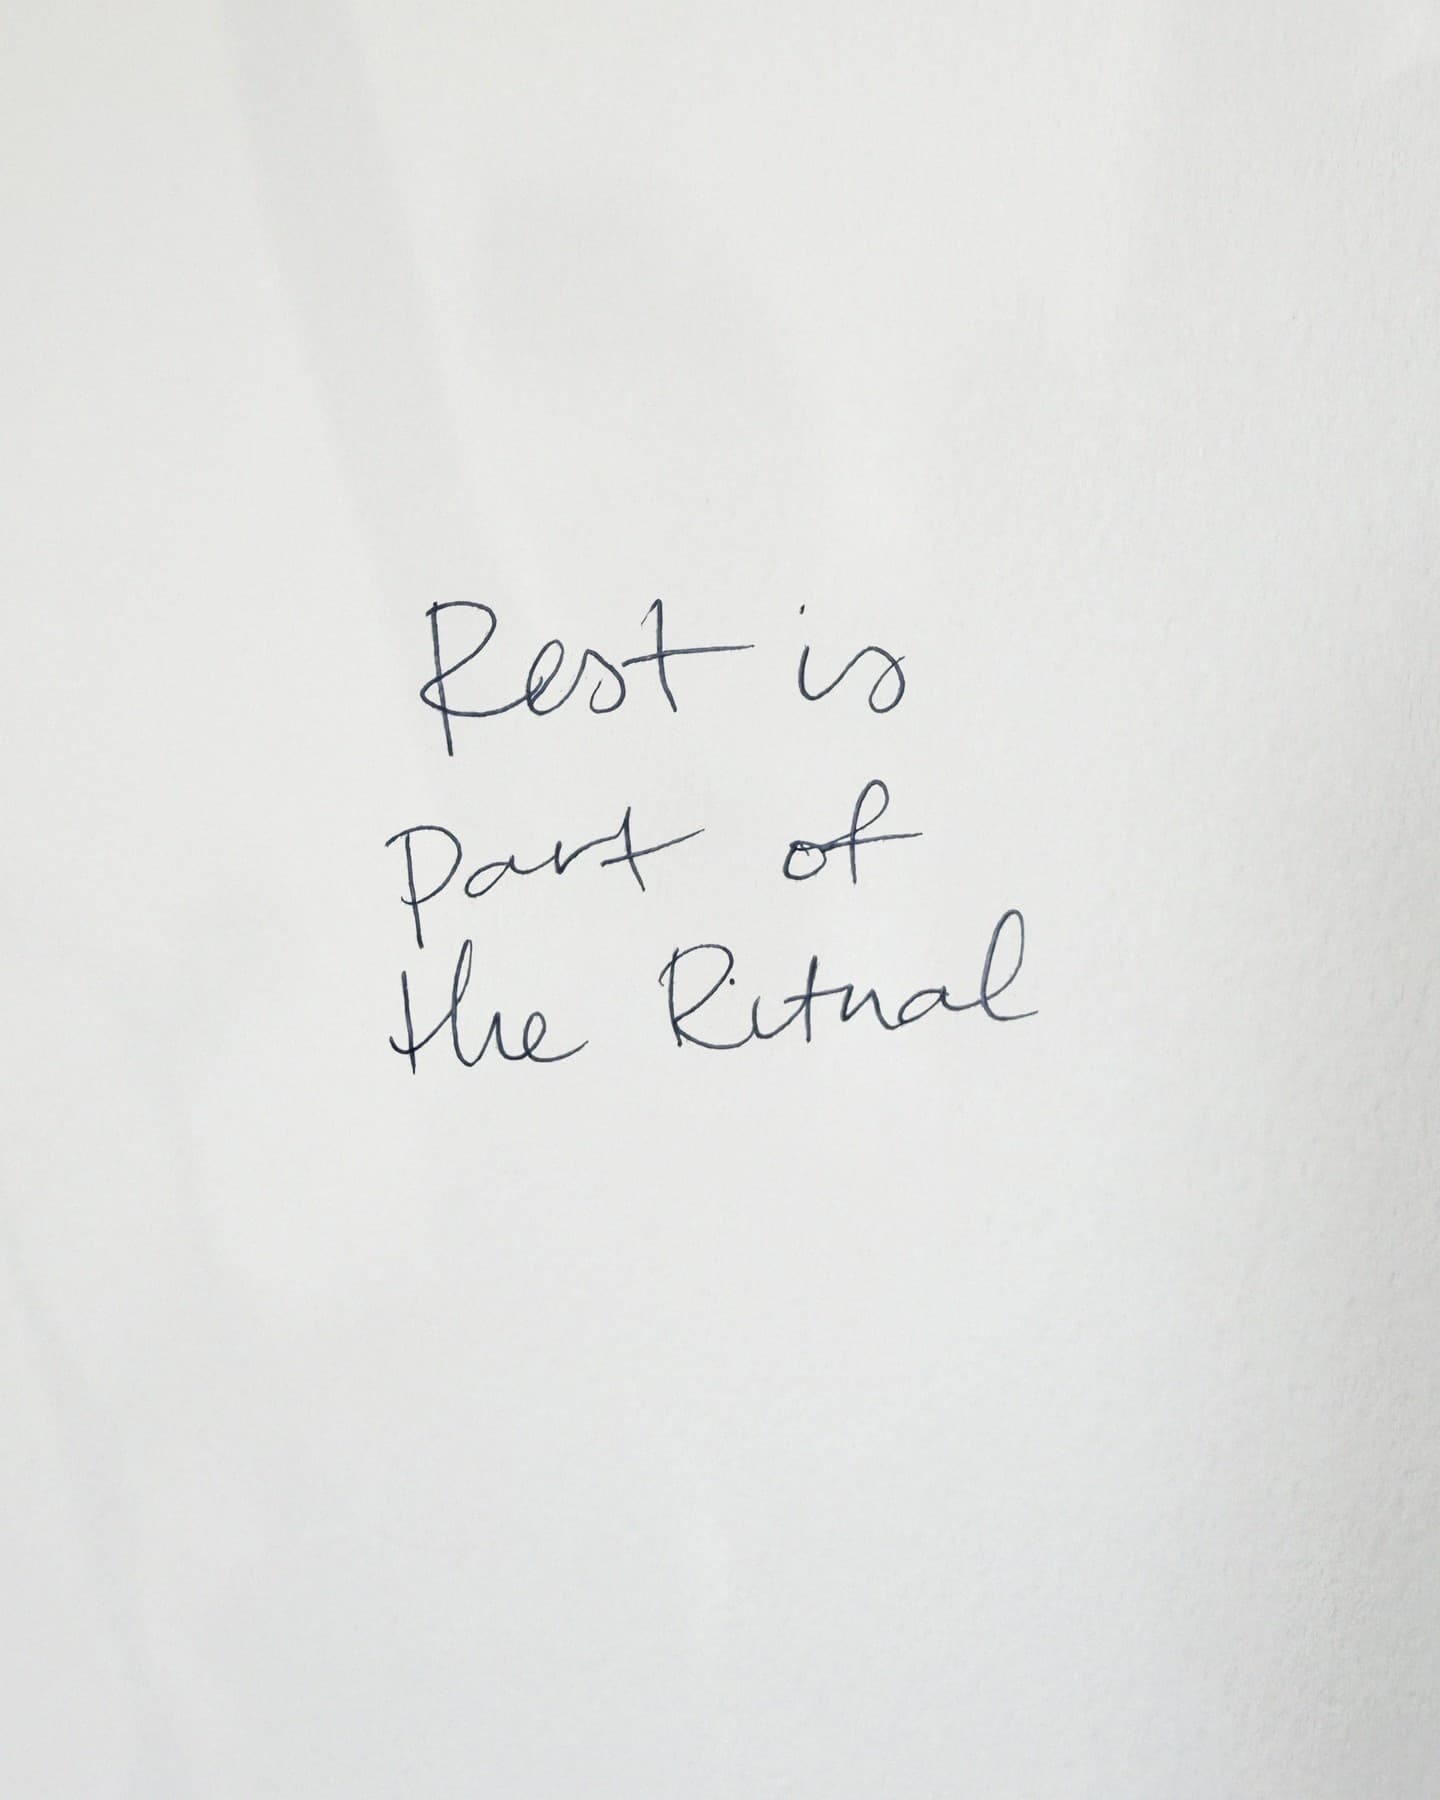 Rest is
Part of
the Ritual